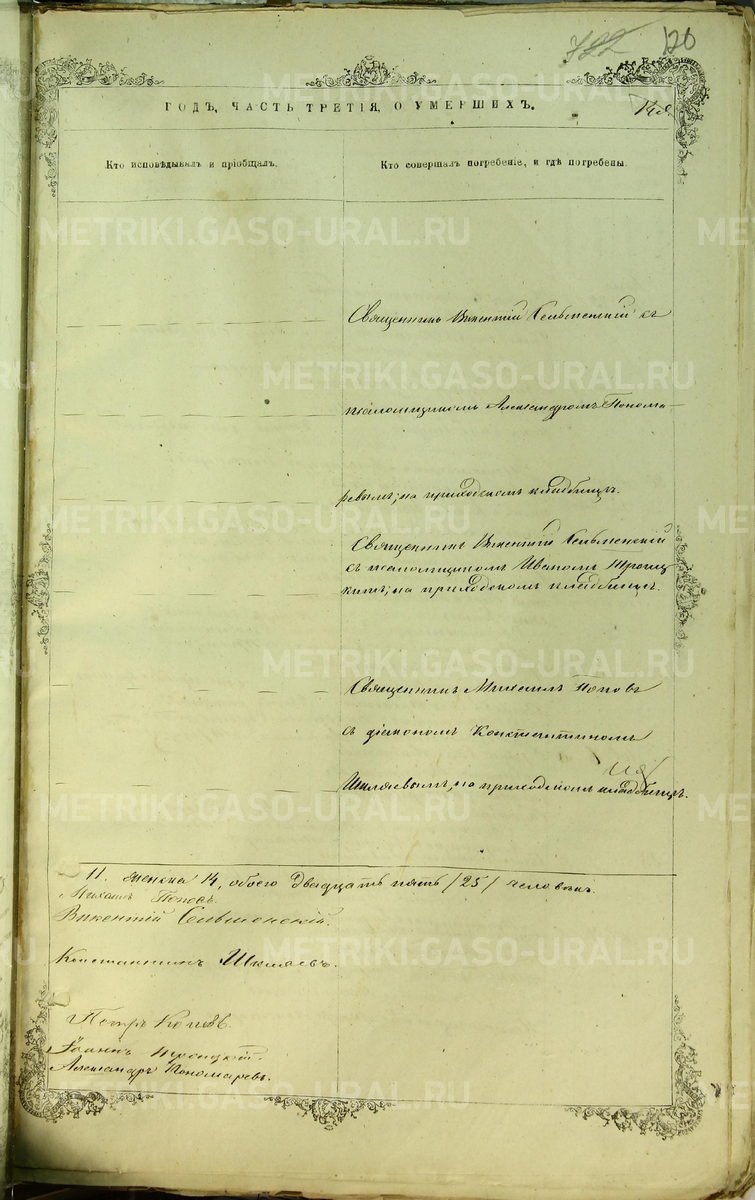 722 120
ГОДЪ, ЧАСТЬ ТРЕТІЯ, О УМЕРШИХЪ.
Кто исповѣдывалъ и пріобщалъ.
Кто совершалъ погребеніе, и гдѣ погребены.
METRIKI.GASO-URAL.RU
Священникъ Викентій Сельменскій съ
псаломщикомъ Александромъ Понома-
ревымъ; на приходскомъ кладбищѣ.
Священникъ Викентій Сельменскій
съ псаломщикомъ Иваномъ Троиц-
кимъ; на приходскомъ кладбищѣ.
Священникъ Михаилъ Поповъ
съ діакономъ Константиномъ
Шкляевымъ, на приходскомъ кладбищѣ.
11. женска 14, обоего двадцать пять /25/ человѣкъ.
Михаилъ Поповъ.
Викентій Сельменскій.
Константинъ Шкляевъ.
Петръ
Іоаннъ Троицкій.
Александръ Пономаревъ.